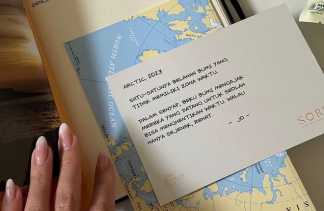 ARCTIC, 2023
SATU-SATUNYA BELAHAN BUMI YANG
TIDAK MEMILIKI ZONA WAKTU.
DALAM SENYAP, BEKU BUMI MENGAJAK
MEREKA YANG DATANG UNTUK SEOLAH
BISA MENGHENTIKAN WAKTU. WALAU
HANYA SEJENAK, REHAT.
- JD -
SOR